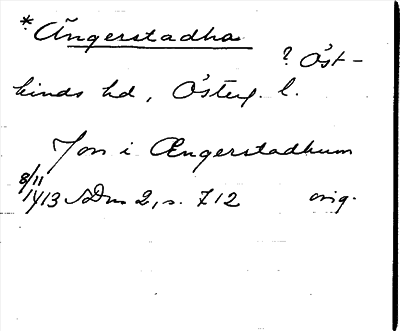 *Ängerstadha
? Öst-
kinds hd, Österg. l.
Jon i Ængerstadhum
8/11
1413 SDns 2, s. 712 orig.